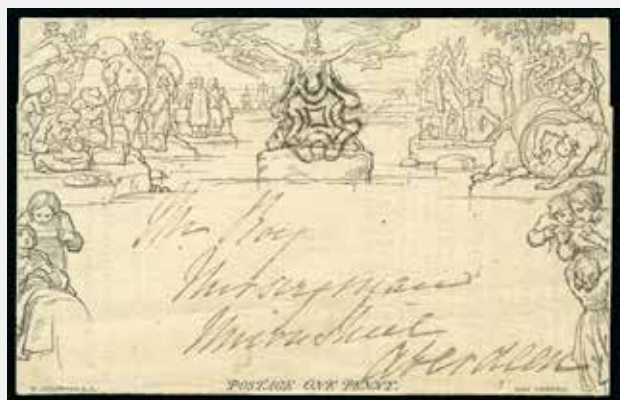 Mr Roy
Nurseryman
Union Street
Aberdeen
POSTAGE ONE PENNY.